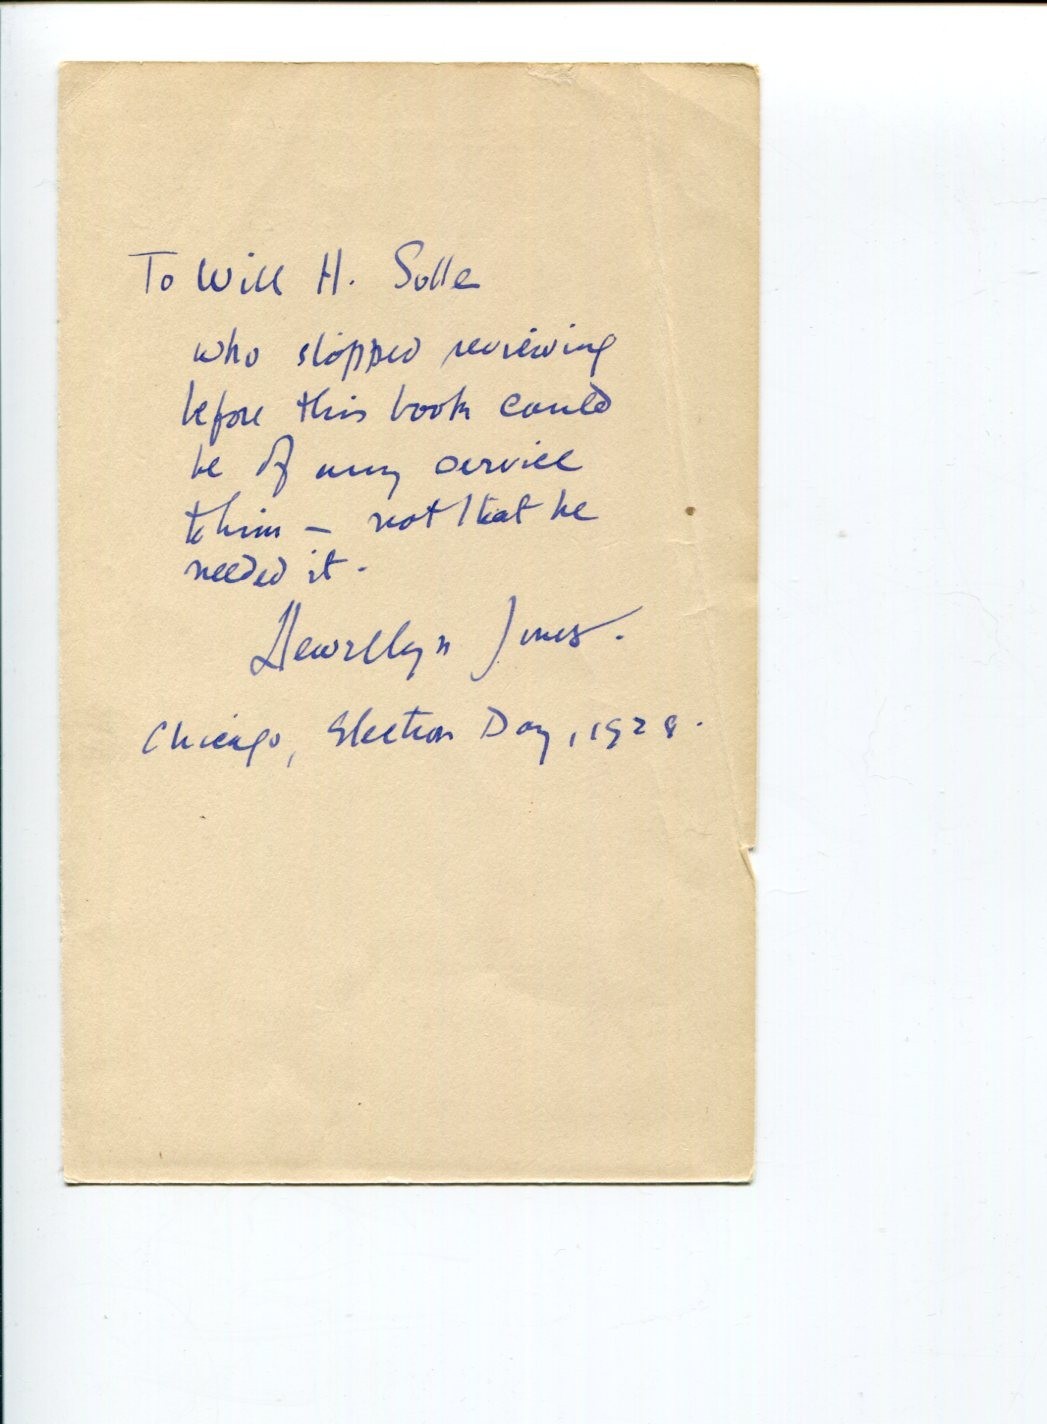 To Will H. Solle
who stopped reviewing
before this book could
be of any service
to him — not that he
needed it.
Llewellyn Jones.
Chicago, Election Day, 1928.